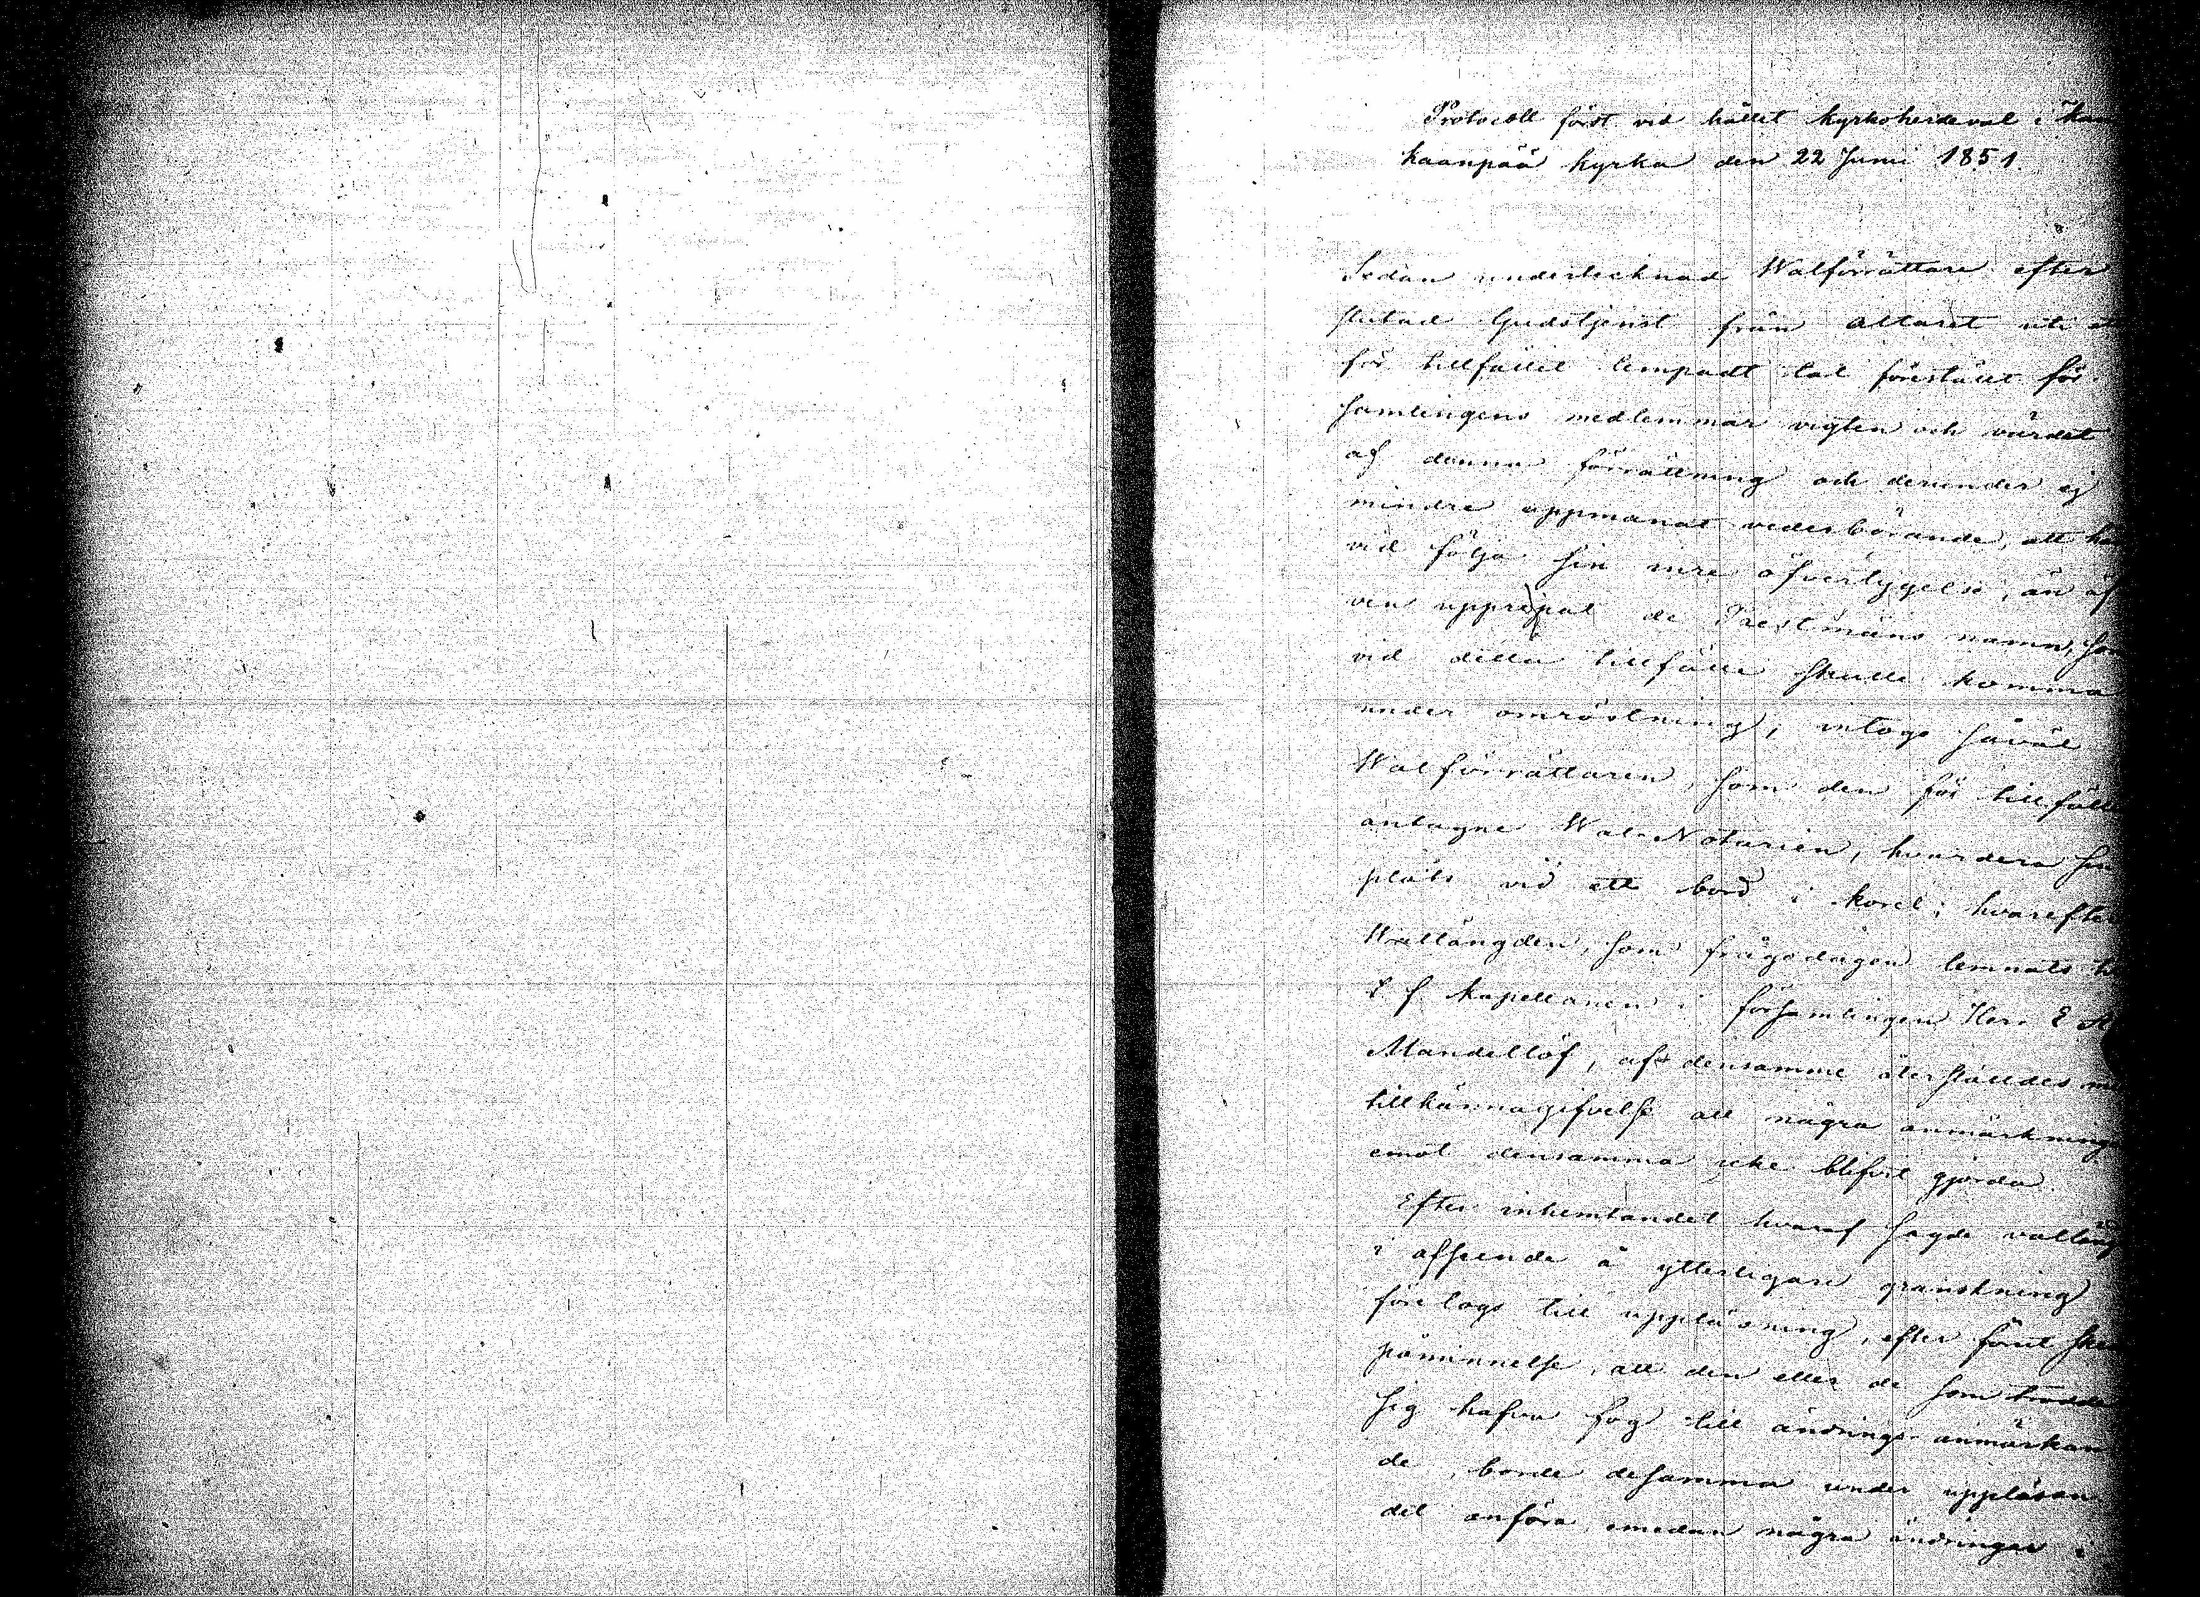 Protocoll fördt vid hållet kyrkoherdeval i Kan
kaanpää kyrka den 22 Junii 1851.
Sedan undertecknad Walförrättare efter
slutad Gudstjenst från altaret uti ett
för tillfället lempadt tal förestält för
samlingens medlemmar vigten och värdet
af denna förrättning och derunder ej
mindre uppmanat vederbörande, att här
vid följa sin inre öfvertygelse, än äf
ven uppropat de Prestmäns namn, som
vid detta tillfälle skulle komma
under omröstning; intogs såväl
Walförrättaren, som den för tillfället
antagne Wal-Notarien, hvardera sin
plats vid ett bord i koret; hvarefter
Wallängden, som frågodagen lemnats till
t. f. kapellanen i församlingen Herr E
Mandellöf, af densamme återställdes med
tillkännagifvelse att några anmärkningar
emot densamma icke blifvit gjorda.
Efter inhemtandet hvaraf sagde vallängd
i afseende å ytterligare granskning
företogs till uppläsning, efter förut sked
påminnelse, att den eller de som trodde
sig hafva fog till ändrings anmärkan
de, borde desamma under uppläsan
det anföra, emedan några ändringar i